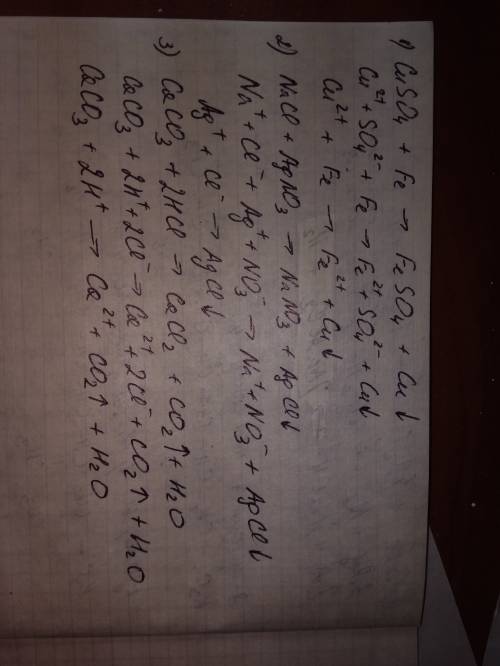 1) CuSO₄ + Fe → FeSO₄ + Cu↓
Cu²⁺ + SO₄²⁻ + Fe → Fe²⁺ + SO₄²⁻ + Cu↓
Cu²⁺ + Fe → Fe²⁺ + Cu↓
2) NaCl + AgNO₃ → NaNO₃ + AgCl↓
Na⁺ + Cl⁻ + Ag⁺ + NO₃⁻ → Na⁺ + NO₃⁻ + AgCl↓
Ag⁺ + Cl⁻ → AgCl↓
3) CaCO₃ + 2HCl → CaCl₂ + CO₂↑ + H₂O
CaCO₃ + 2H⁺ + 2Cl⁻ → Ca²⁺ + 2Cl⁻ + CO₂↑ + H₂O
CaCO₃ + 2H⁺ → Ca²⁺ + CO₂↑ + H₂O